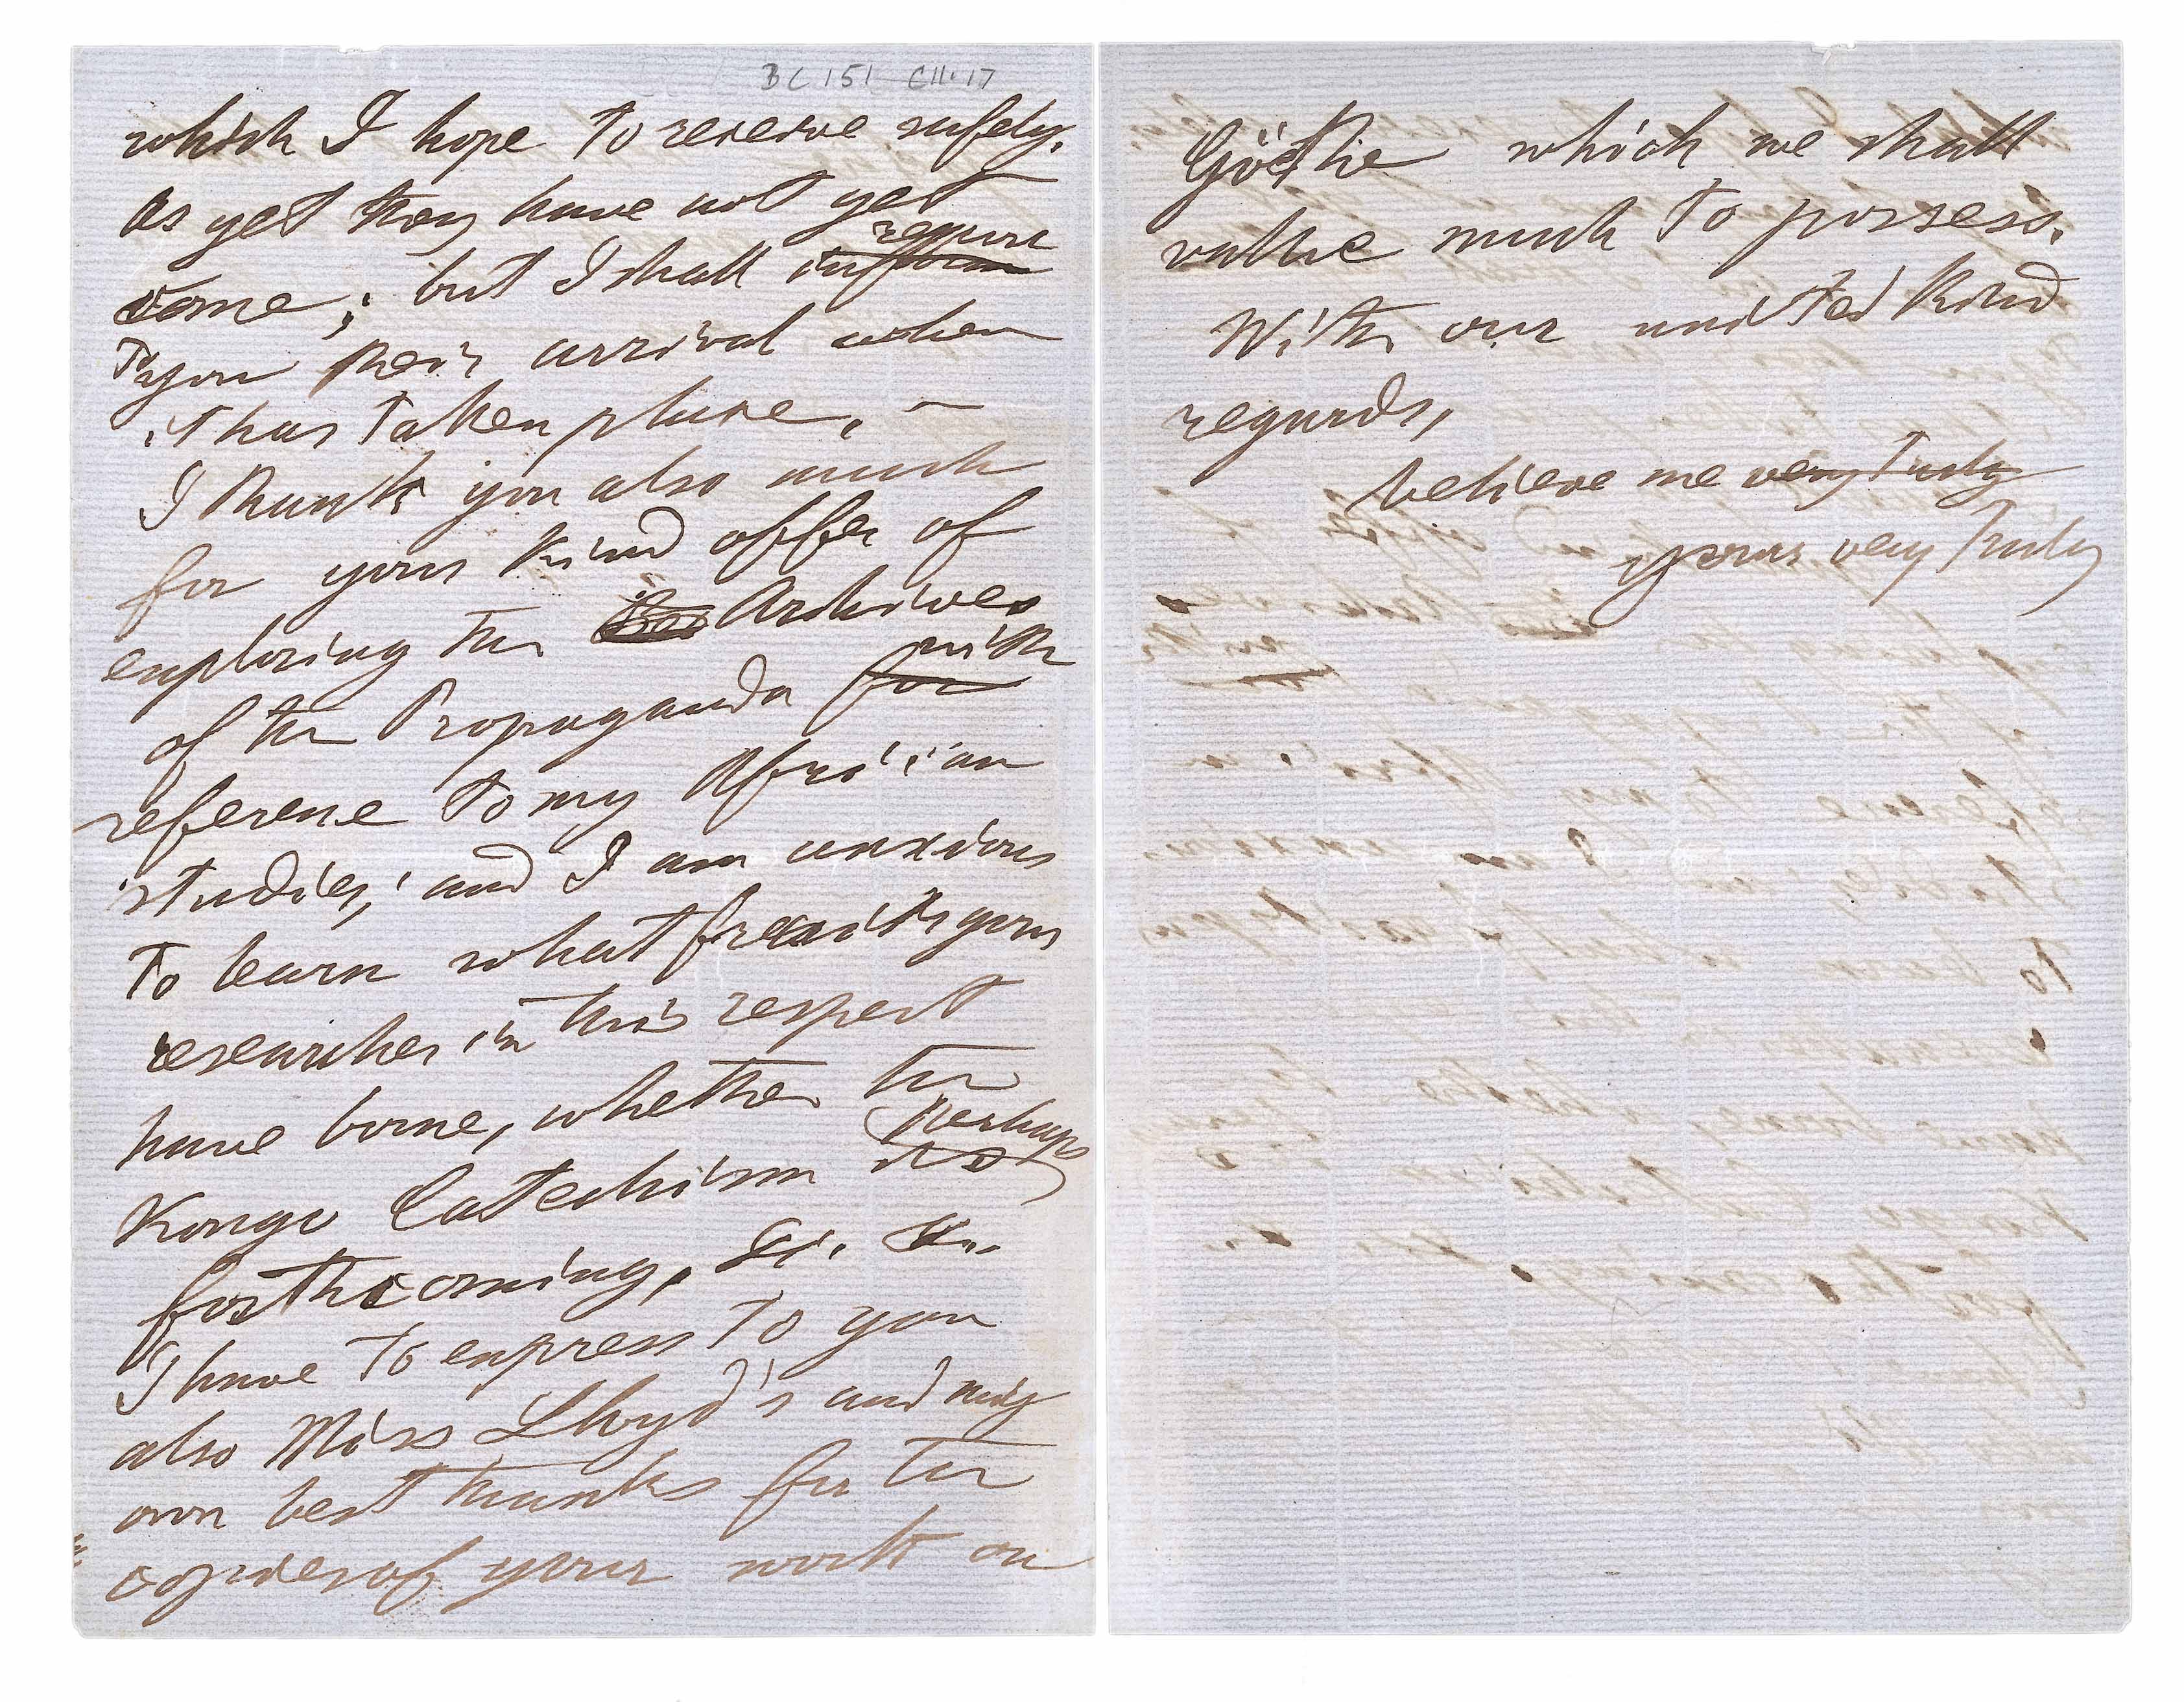 BC 151 C11.17
which I hope to receive safely.
As yet they have not yet
report
come; but I shall inform
to you their arrival when
it has taken place. –
I thank you also much
for your kind offer of
exploring the Archives
with
of the Propaganda for
reference to my African
studies; and I am anxious
to learn what fruits your
researches in this respect
have borne, whether the
perhaps
Kongo Catechism is
forthcoming, &c. &c.
I have to express to you
also Miss Lloyd's and my
own best thanks for the
copies of your work on
Göethe which we shall
value much to possess.
With our united kind
regards,
believe me very truly
yours very truly